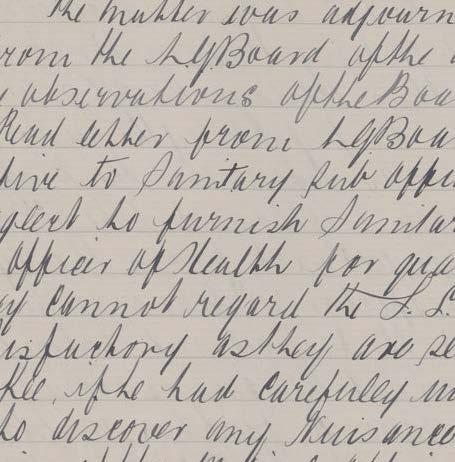 the matter was adjourn
rom the LGBoard of the
observations of the Boa
Read letter from LGBoa
tive to Sanitary Sub offi
glect to furnish Sanitar
officer of Health for qua
y cannot regard the S. S.
isfactory as they are se
if he had carefully
to discover any Nuisance